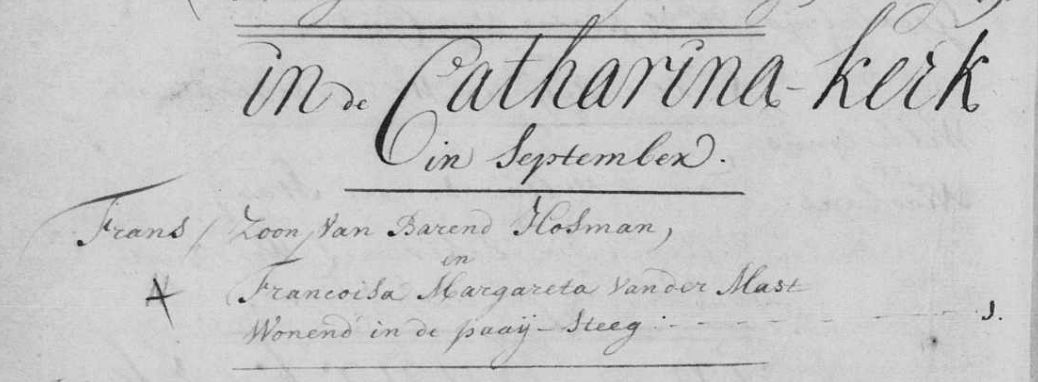 in de Catharina-kerk
in September.
Frans / Zoon van Barend Hosman,
en
Francoisa Margareta vander Mast
Wonend in de paaÿ-steeg : - - - - - 1.